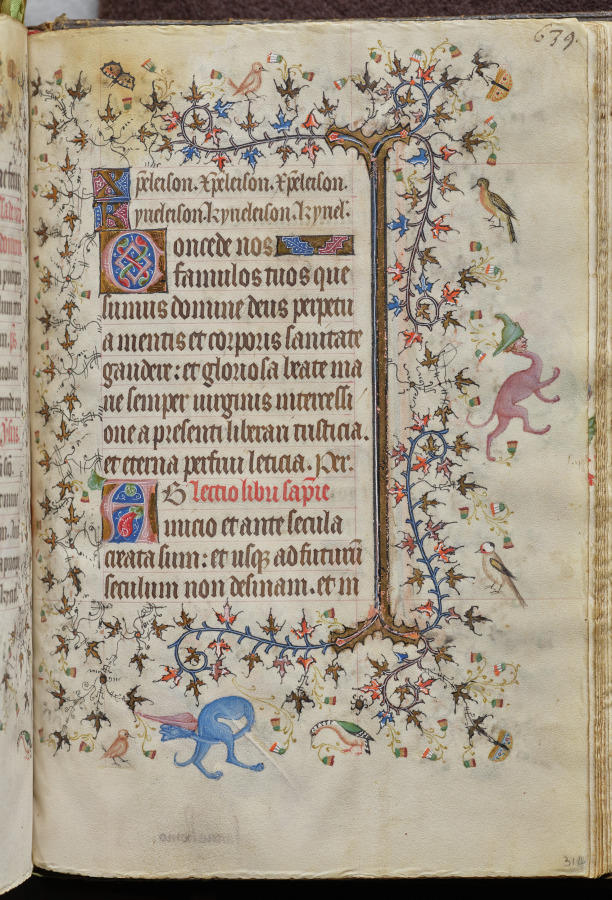 639.
Xpeleison. Xpeleison. Xpeleison.
Kyrieleison. Kyrieleison. Kyriel'.
Concede nos
famulos tuos que
sumus domine deus perpetu
a mentis et corporis sanitate
gaudere: et gloriosa beate ma
rie semper uirginis intercessi
one a presenti liberari tristicia.
et eterna perfrui leticia. Per.
lectio libri sapie
Ab inicio et ante secula
creata sum: et usq; ad futurū
seculum non desinam. et in
314